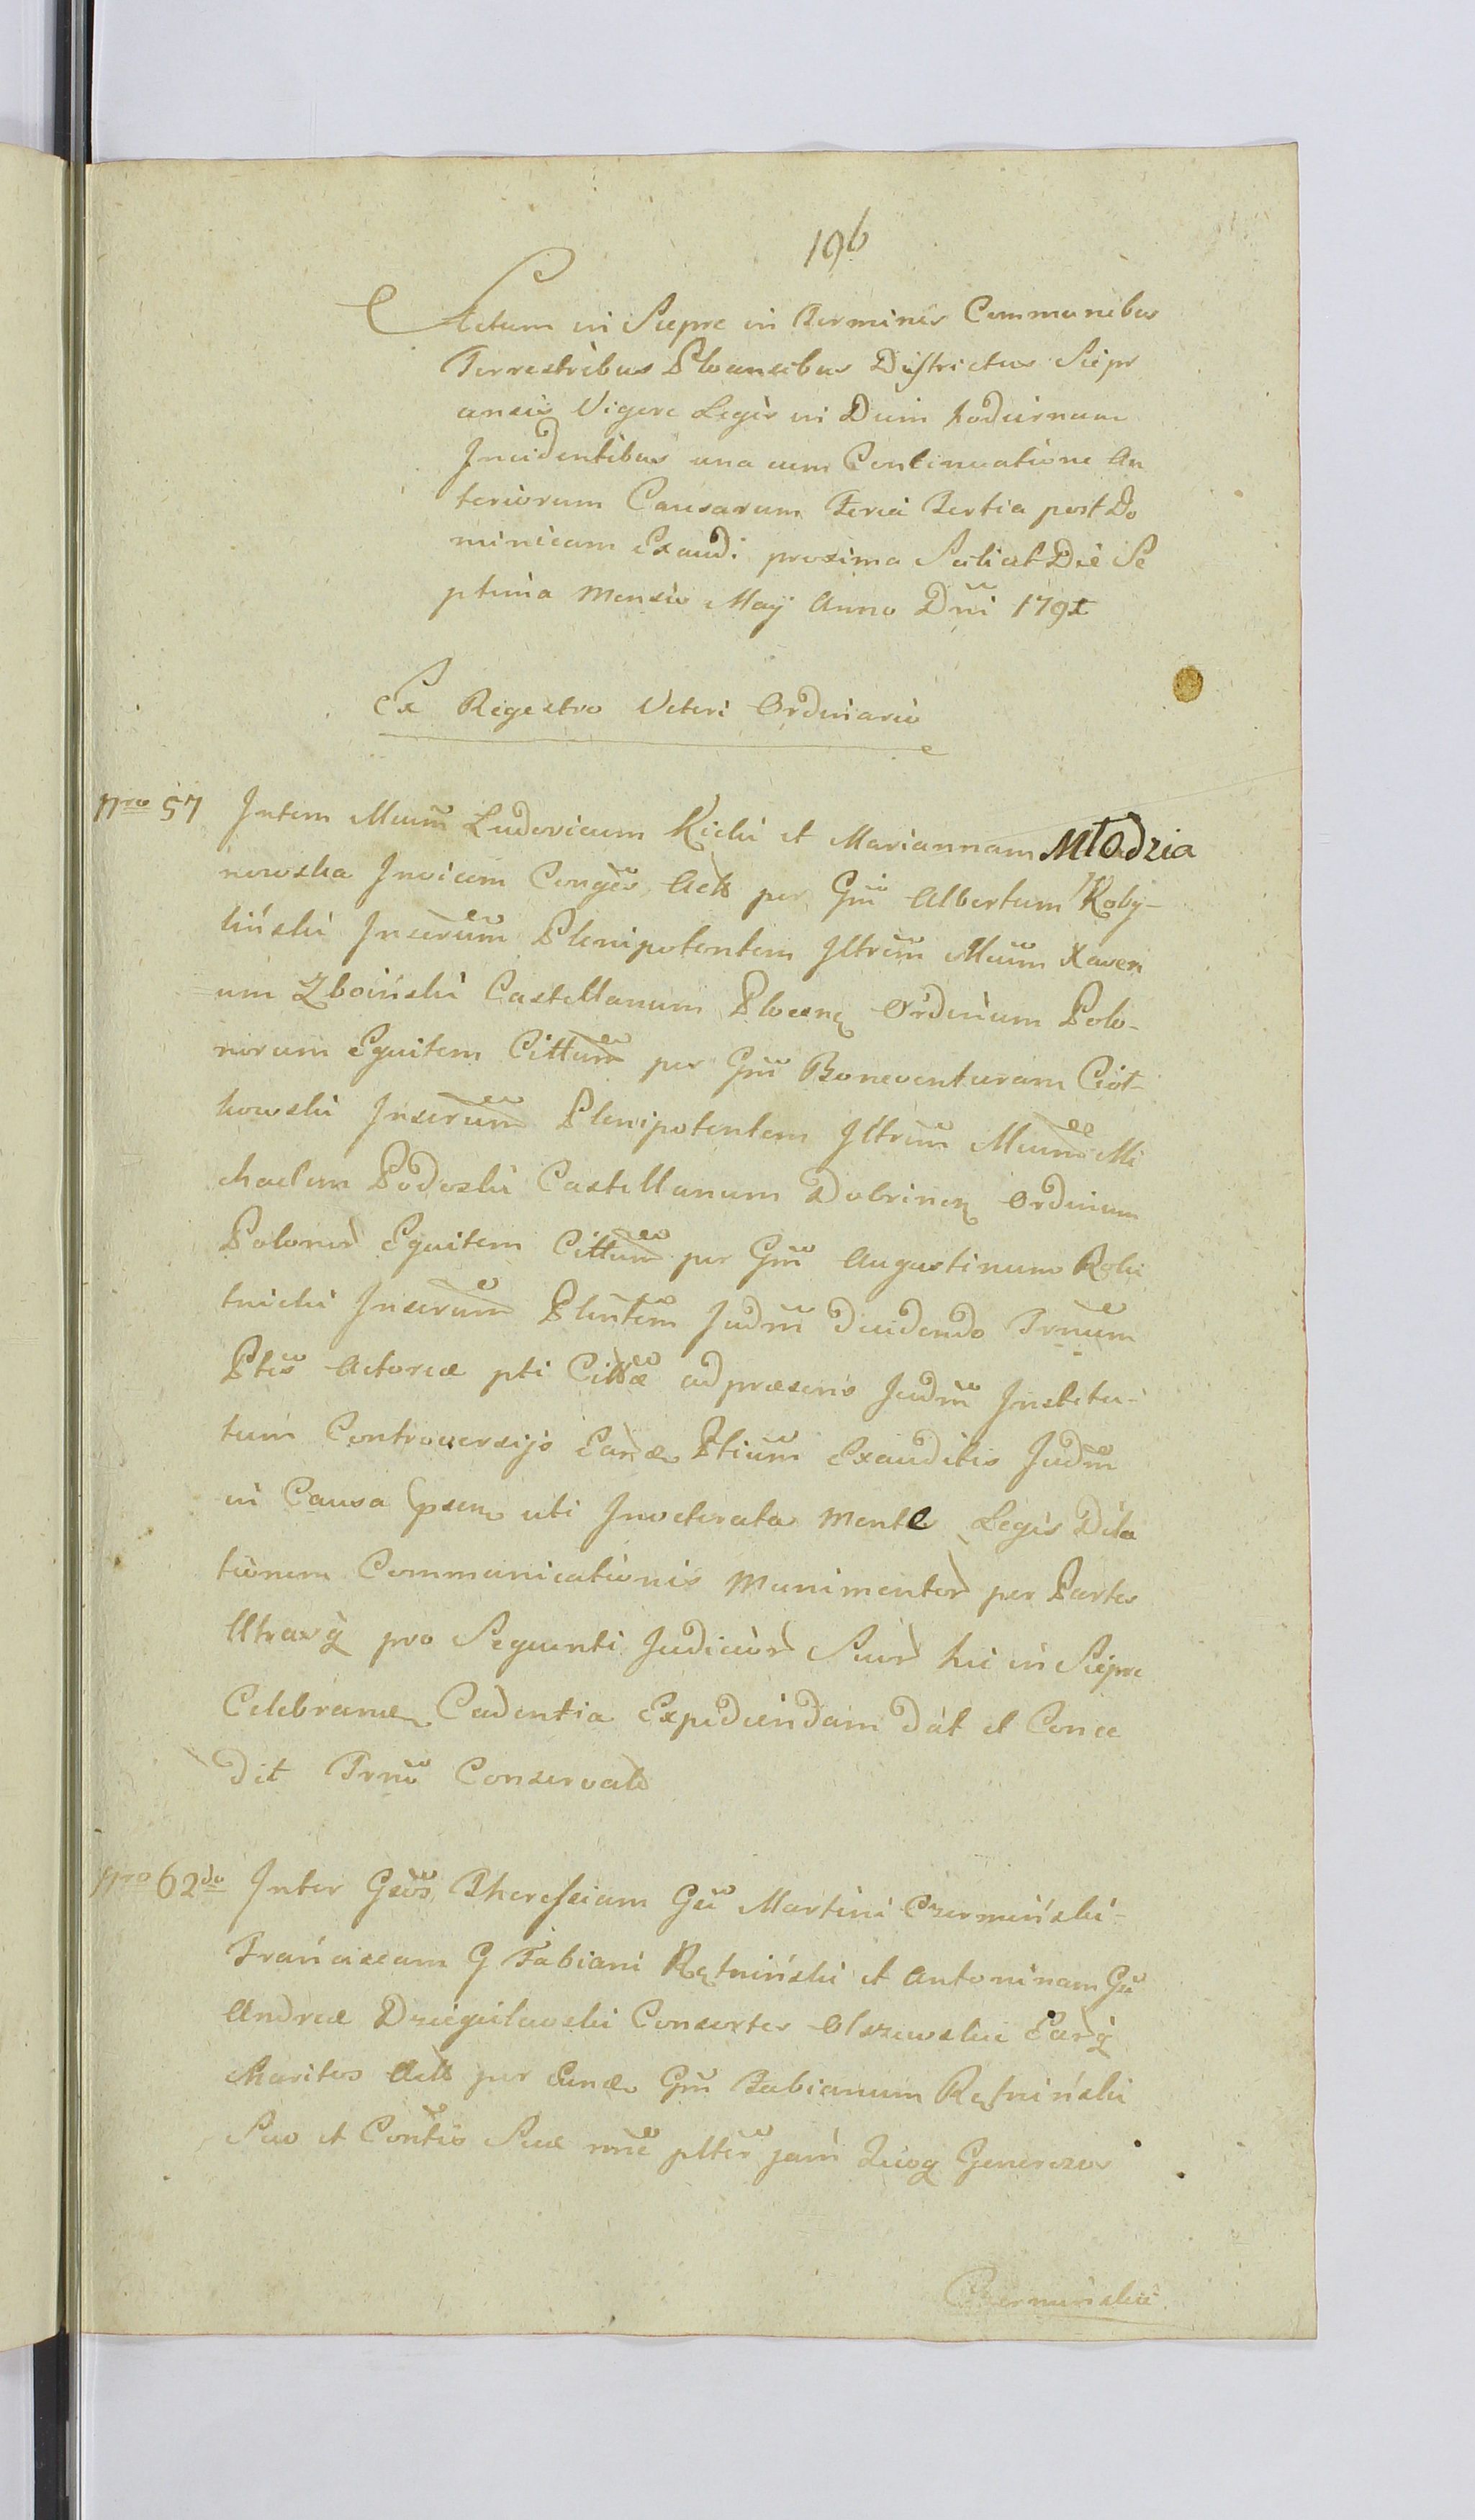 196
Actum in Sieprc in Terminis Communibus
Terrestribus Plocensibus Districtus Siepr
censis Vigore Legis in Diem hodiernam
Incidentibus una cum Continuatione An
teriorum Causarum Feria Tertia post Do
minicam Exaudi proxima Scilicet Die Se
ptima Mensis Maij Anno Dni 179
Ex Regestro Veteri Ordinario
Nro 57 Interm Mcum Ludovicum Kicki et Mariannam Młodzia
nowska Invicem Conges Acts per Gm Albertum Koby-
liński Inserum Plenipotentem Illtrem Mcum Xaveri
um Zboiński Castellanum Plocen Ordinum Polo-
norum Equitem Cittum per Gm Boneventuram Cioł-
kowski Inserum Plenipotentem Illtrem Mcum Mi
chaelem Podoski Castellanum Dobrinen Ordinum
Polonor Equitem Cittum per Gm Augustinum Role
tnicki Inserum Plentem Judm decidendo Trnum
Ptis Actoreæ pti Cittæ ad præsens Judm Institu-
tum Controversijs Earde Ptium Exauditis Judm
in Causa Ipsen uti Inveterata Mente Legis Dila
tionem Communicationis Munimentor per Partes
Utrasq pro Sequenti Judicior Suor hic in Sieprc
Celebranæ Cadentia Expediendam dat et Conce
dit Trno Conservato
Nro 62do Inter Gsos Theressiam Gsi Martini Czermiński-
Franciscam G Fabiani Rętwiński et Antoninam Gsi
Andreæ Dzięgielewski Consortes Olszewskie Earq
Maritos Acts per Eunde Gm Fabianum Rętwiński
Suo et Contis Suæ nne plter jam Quoq Generosos
Czermińskie